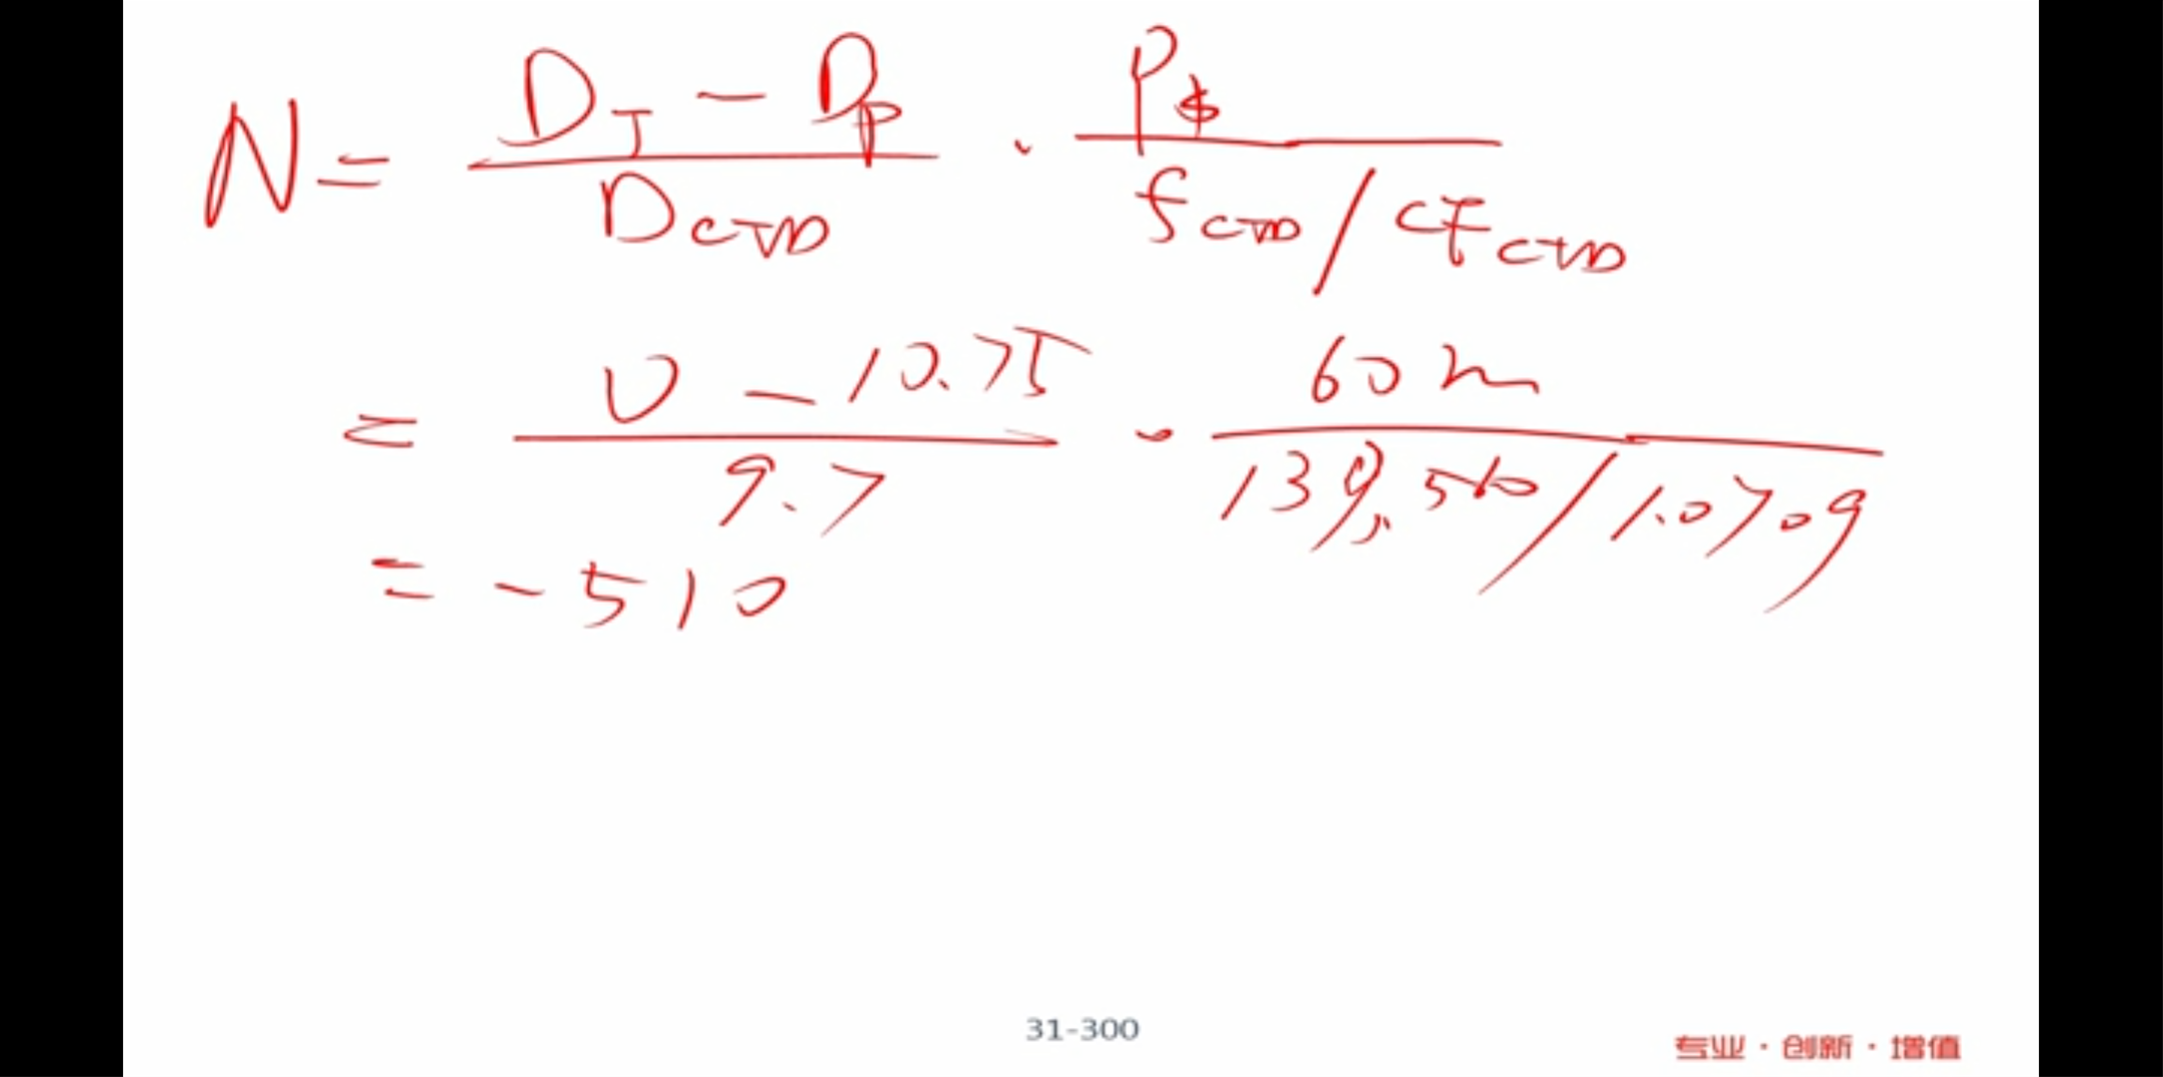 N = (D_T − D_P) / D_CTD · P_$ / (f_CTD / CF_CTD)
= (0 − 10.75) / 9.7 · 60m / (139,510 / 1.0709)
= −510
31-300
专业·创新·增值